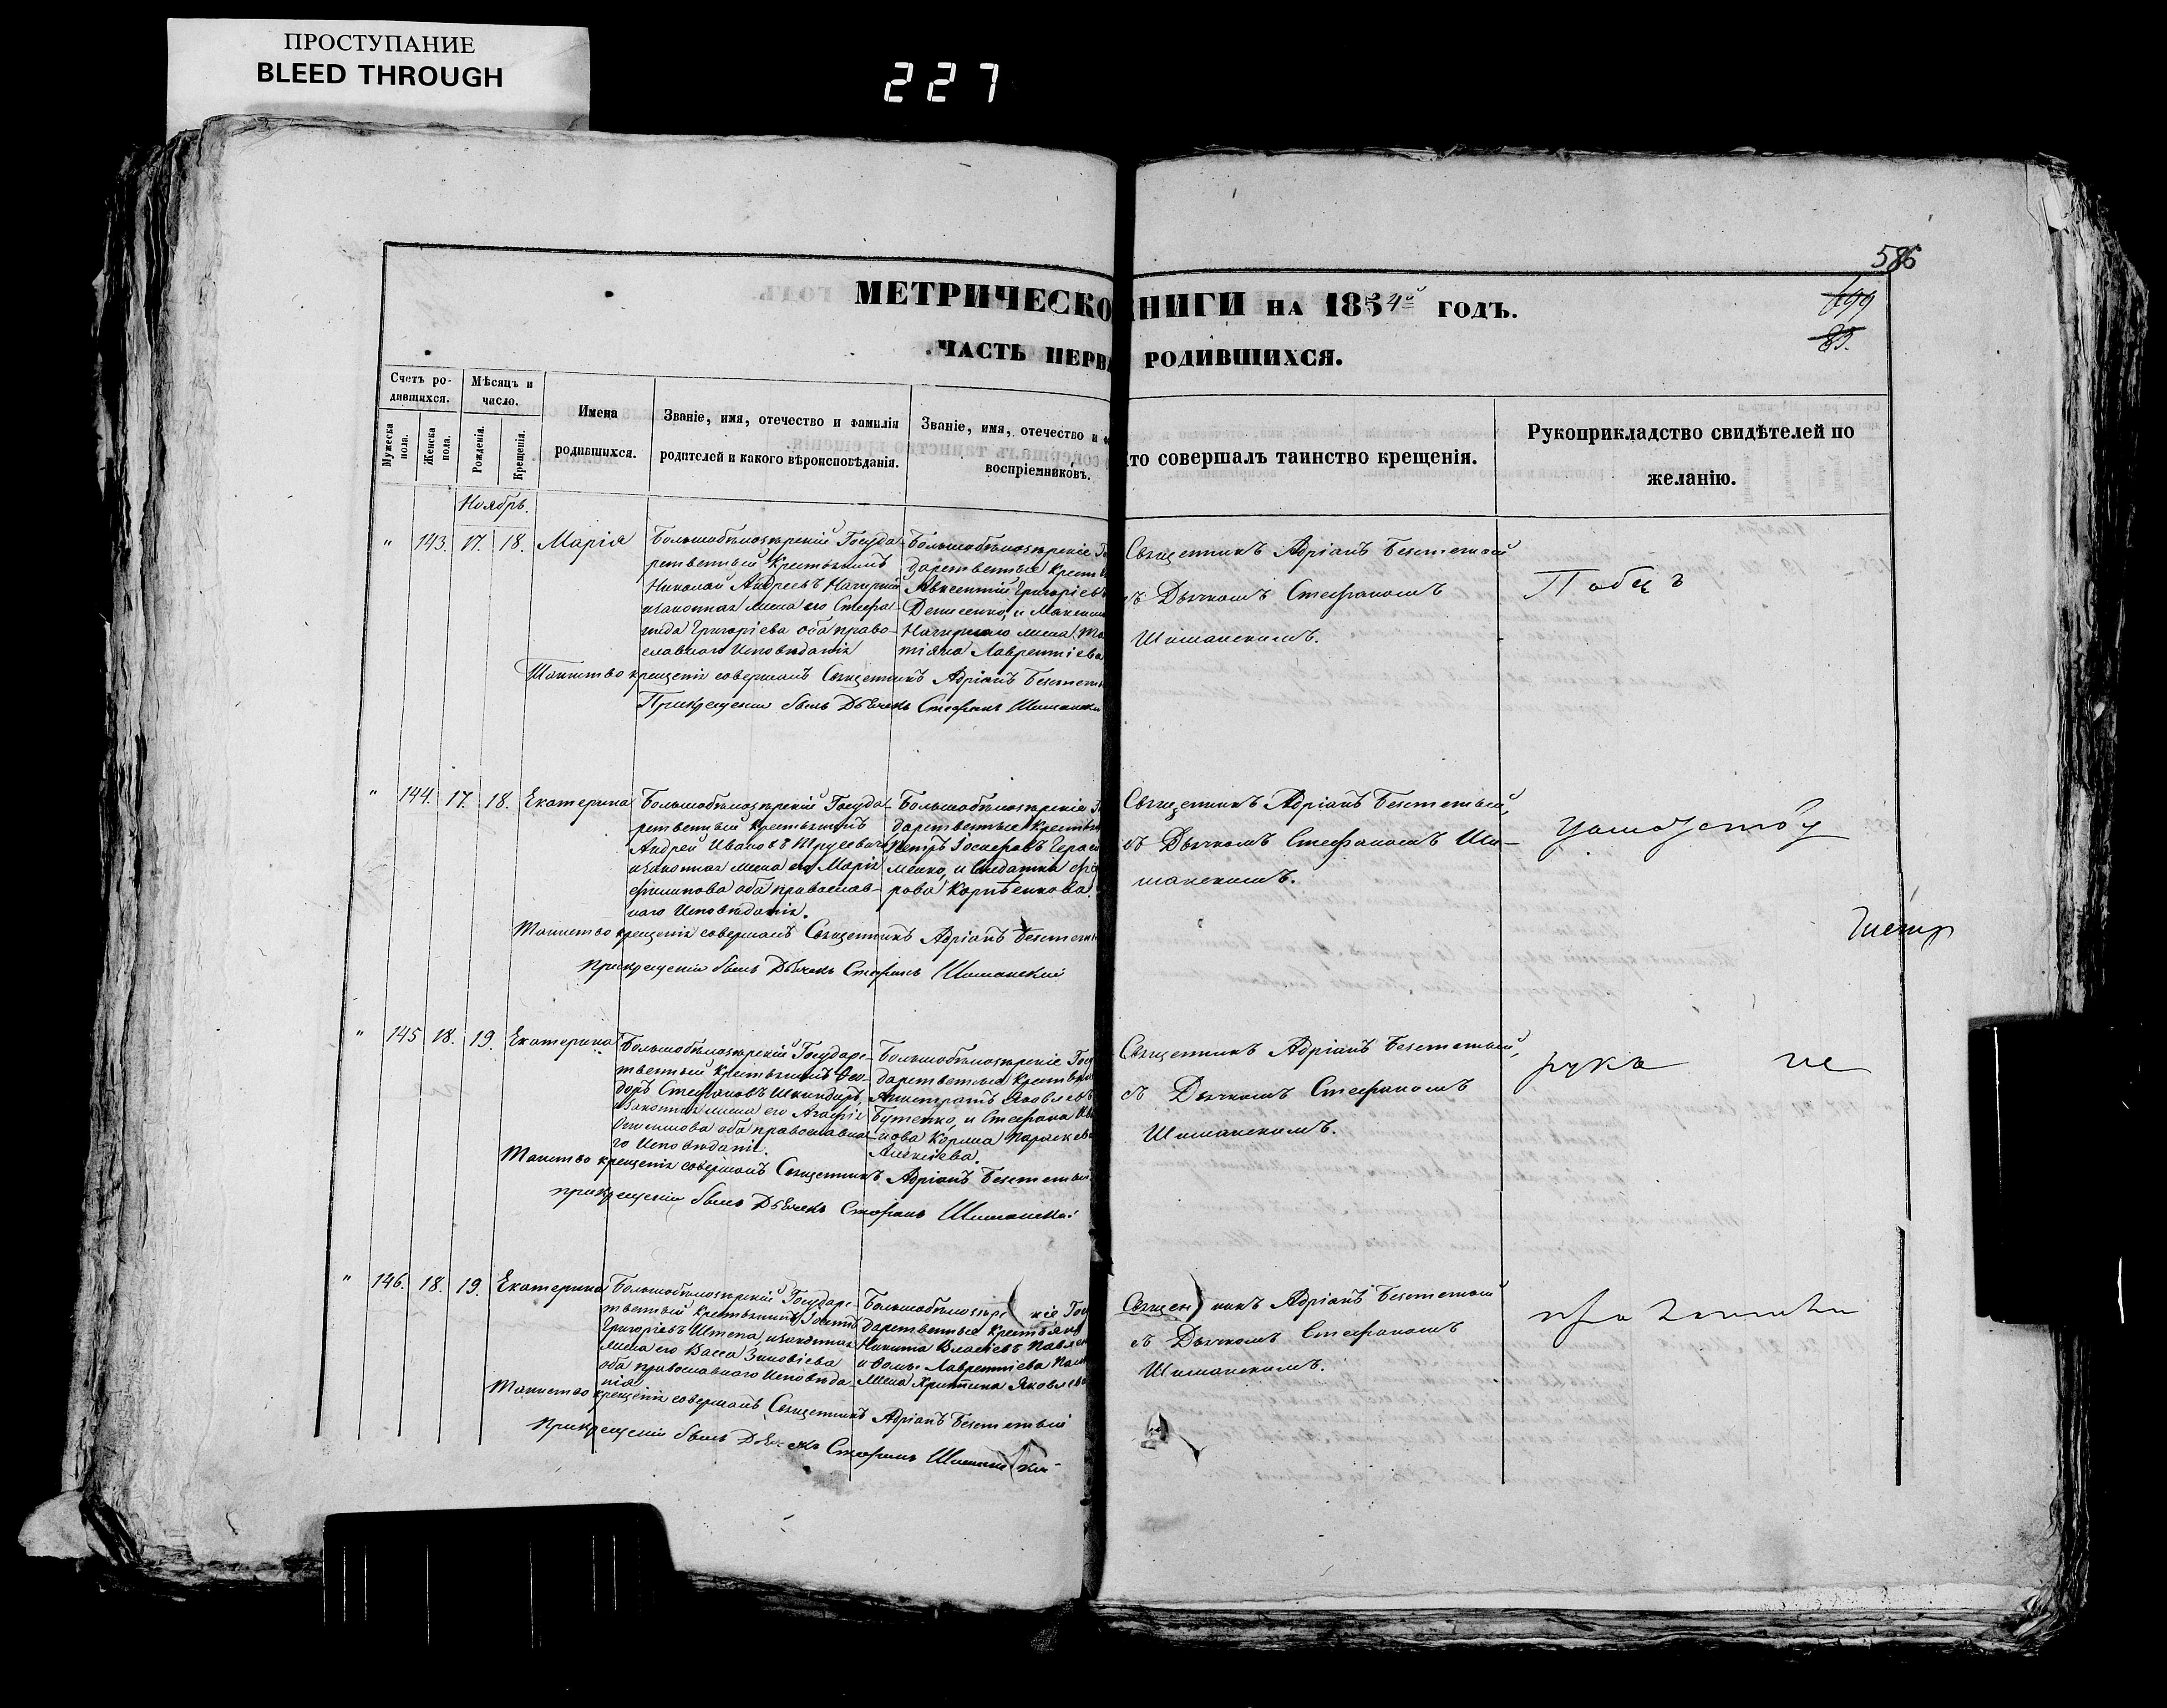 ПРОСТУПАНИЕ
BLEED THROUGH
227
586
199
83.
МЕТРИЧЕСКО НИГИ НА 1854й ГОДЪ.
ЧАСТЬ ПЕРВ РОДИВШИХСЯ.
Счетъ ро-
дившихся.
Мужеска
пола.
Женска
пола.
Мѣсяцъ и
число.
Рожденія.
Крещенія.
Имена
родившихся.
Званіе, имя, отечество и фамилія
родителей и какого вѣроисповѣданія.
Званіе, имя, отечество и ф
воспріемниковъ.
то совершалъ таинство крещенія.
Рукоприкладство свидѣтелей по
желанію.
Ноябрь.
" 143. 17. 18. Марія
Большебѣлозерскій Госуда-
рственный Крестьянинъ
Николай Андреевъ Нагирный
и законная жена его Стефа-
нида Григоріева оба право-
славнаго Исповѣданія
Большебѣлозерскіе Го
дарственные Крестья
Авксентій Григоріевъ
Денисенко, и Максима
Нагирнаго жена Та
тіана Лаврентіева
Священникъ Адріанъ
съ Дьячкомъ Стефаномъ
Шиманскимъ.
Таинство крещенія совершалъ Священникъ Адріанъ
При крещеніи былъ Дьячекъ Стефанъ Шимански
" 144. 17. 18. Екатерина
Большебѣлозерскій Госуда-
рственный Крестьянинъ
Андрей Ивановъ
и законная жена его Марія
Филипова оба православ-
наго Исповѣданія.
Большебѣлозерскіе Го
дарственные Крестья
Петръ Іосифовъ Гераси
менко, и Солдатка
рова Корнѣенкова
Священникъ Адріанъ
съ Дьячкомъ Стефаномъ Ши-
манскимъ.
Таинство крещенія совершалъ Священникъ Адріанъ
При крещеніи былъ Дьячекъ Стефанъ Шиманскій
" 145 18. 19. Екатерина
Большебѣлозерскій Государс-
твенный Крестьянинъ Фео-
доръ Стефановъ
и законная жена его Агафія
оба православна-
го Исповѣданія.
Большебѣлозерскіе Госу
дарственные Крестьяне
Яковлевъ
Бутенко, и Стефана Ива
нова Коржа Параскева
Алексіева.
Священникъ Адріанъ
съ Дьячкомъ Стефаномъ
Шиманскимъ.
рука не
Таинство крещенія совершалъ Священникъ Адріанъ
При крещеніи былъ Дьячекъ Стефанъ Шиманскій
" 146. 18. 19. Екатерина
Большебѣлозерскій Государс-
твенный Крестьянинъ Іоаннъ
Григоріевъ Штепа, и законная
жена его Васса Зиновіева
оба православнаго Исповѣда-
нія
Большебѣлозерскіе Госу
дарственные Крестьяне
Никита Власіевъ Павлен
и Лаврентіева
жена Христина Яковлева
Священникъ Адріанъ
съ Дьячкомъ Стефаномъ
Шиманскимъ.
Таинство крещенія совершалъ Священникъ Адріанъ
При крещеніи былъ Дьячекъ Стефанъ Шиманскій